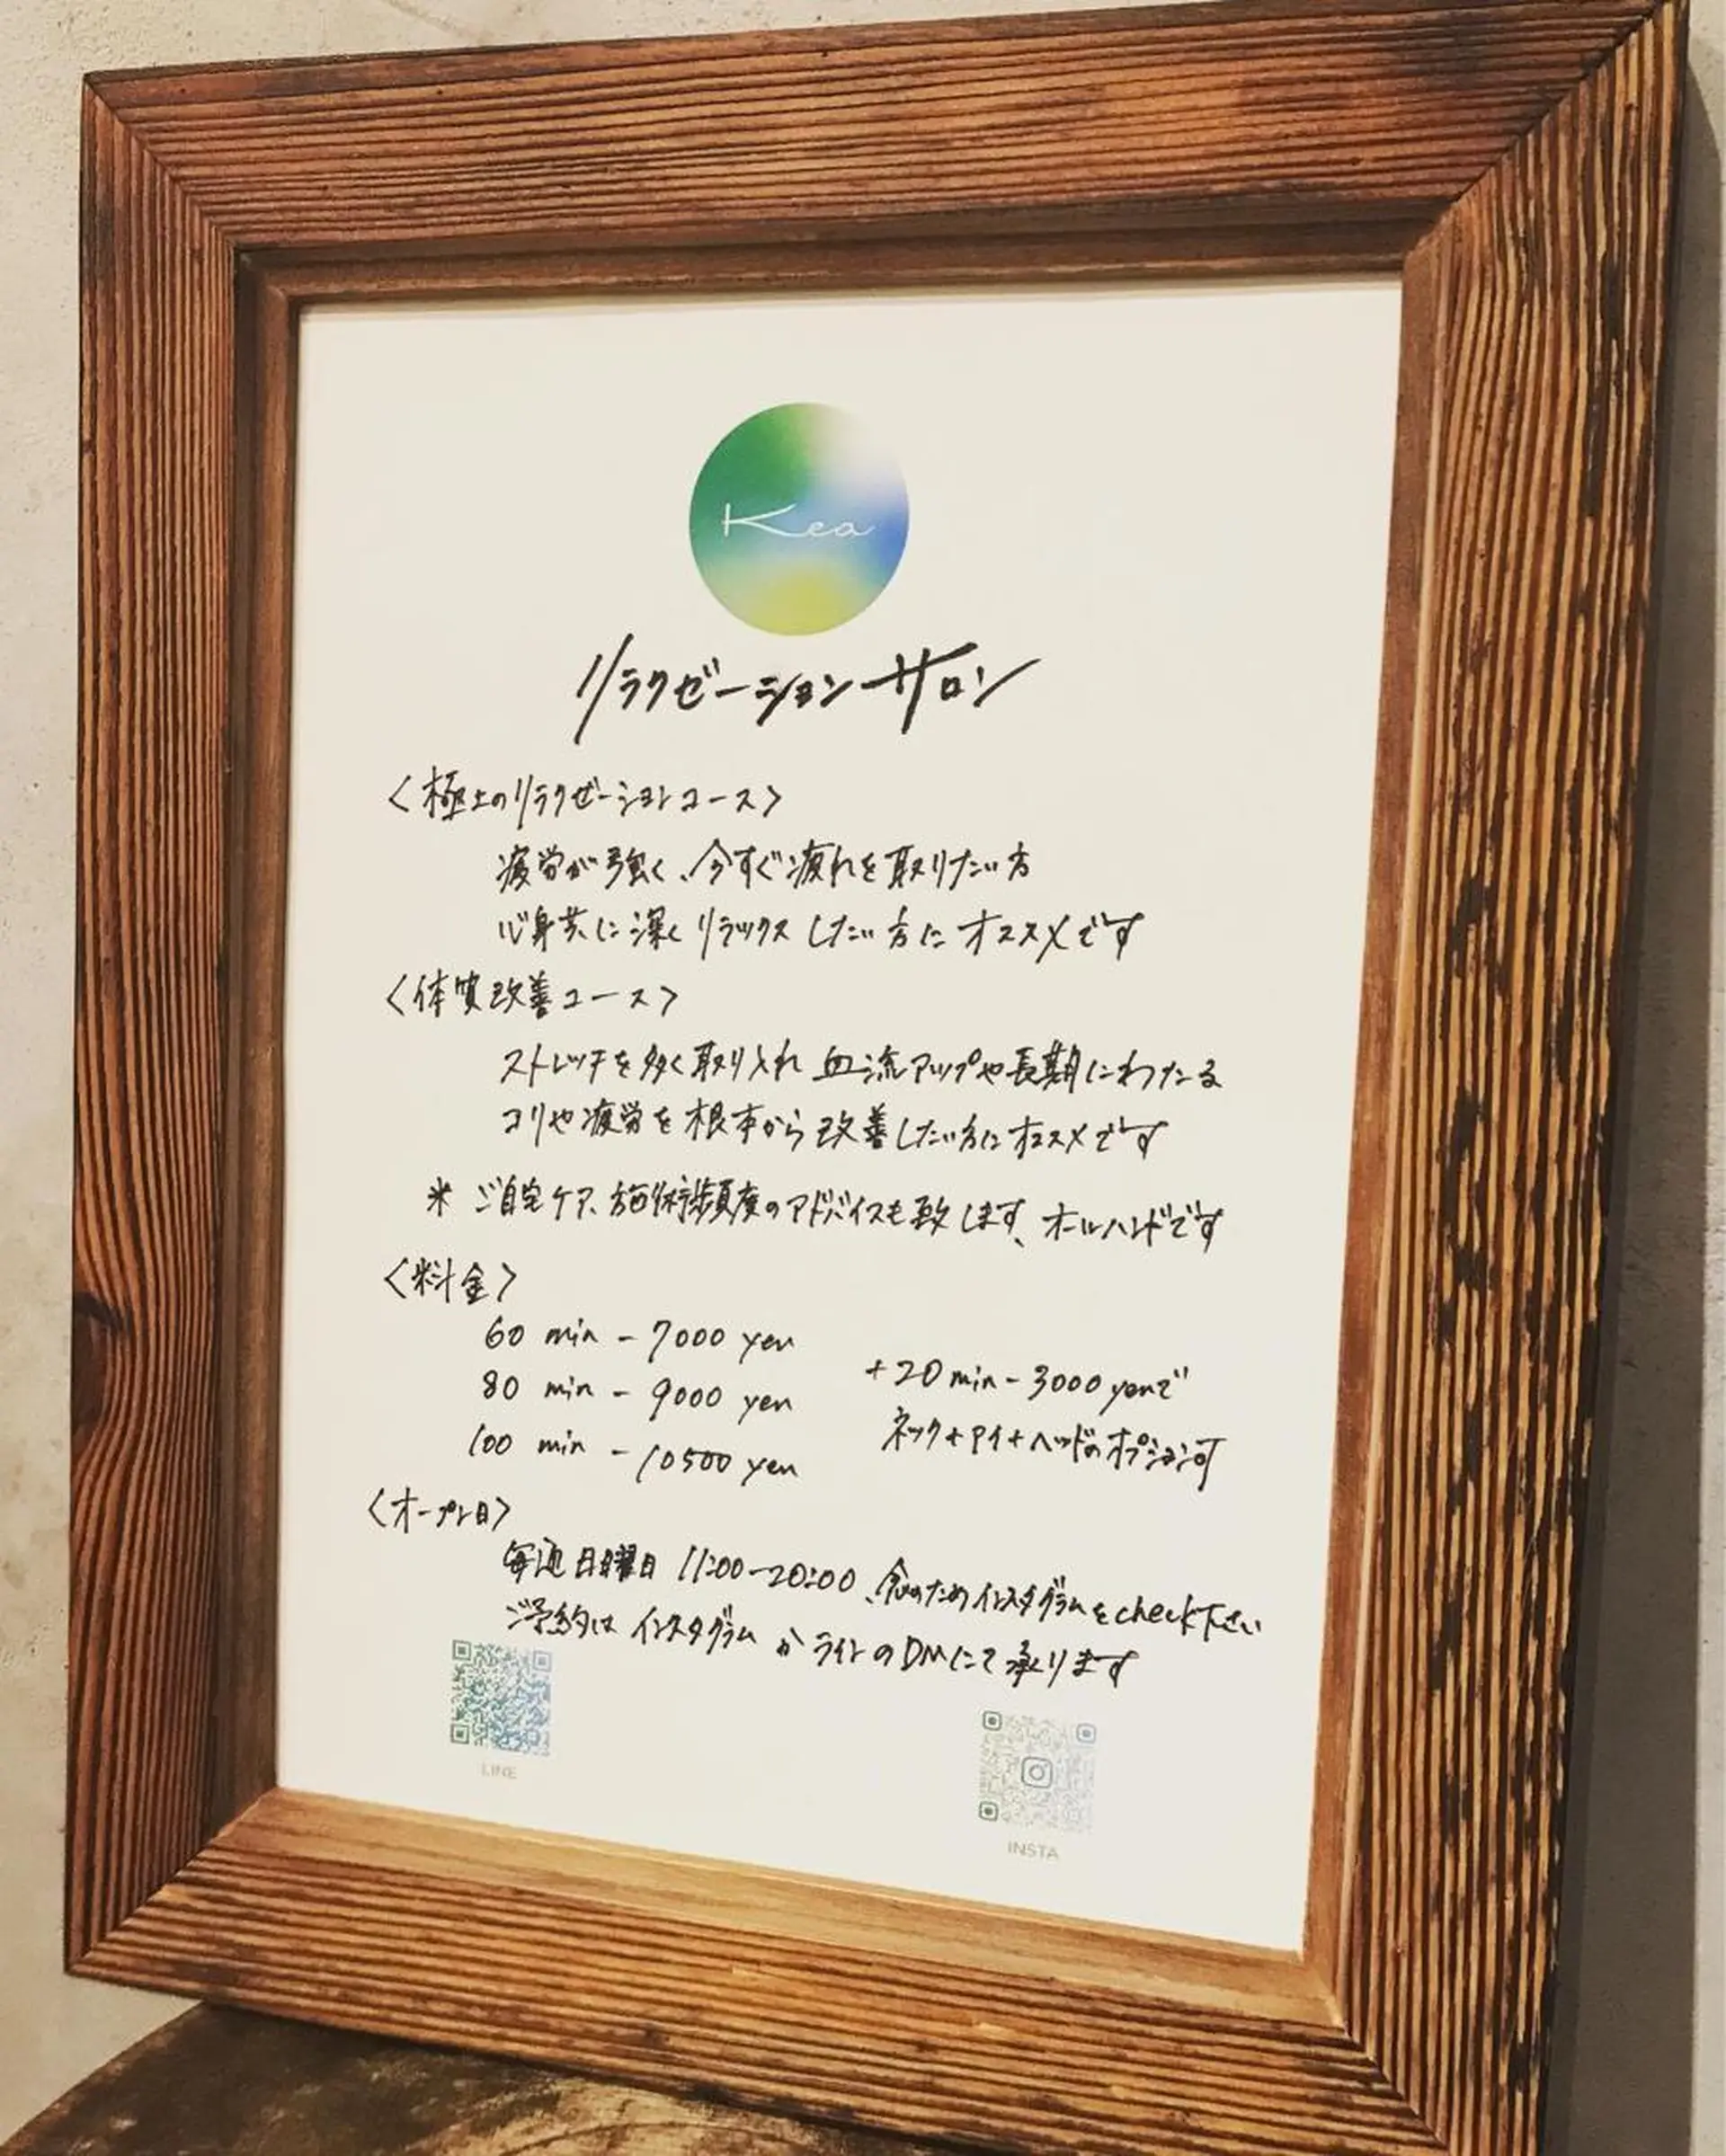 Kea
リラクゼーションサロン
〈極上のリラクゼーションコース〉
疲労が強く、今すぐ疲れを取りたい方
心身共に深くリラックスしたい方にオススメです
〈体質改善コース〉
ストレッチを多く取り入れ 血流アップや長期にわたる
コリや疲労を根本から改善したい方にオススメです
* ご自宅ケア、施術頻度のアドバイスも致します、オールハンドです
〈料金〉
60 min - 7000 yen
80 min - 9000 yen
100 min - 10500 yen
+20min - 3000 yenで
ネック+アイ+ヘッドのオプション可
〈オープン日〉
毎週日曜日 11:00-20:00、念のためインスタグラムをcheck下さい
ご予約はインスタグラムかラインのDMにて承ります
LINE
INSTA